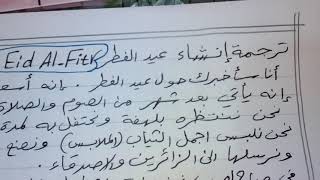 ترجمة إنشاء عيد الفطر Eid Al-Fitr
أنا سأخبرك حول عيد الفطر. إنه أسعد
إنه يأتي بعد شهر من الصوم والصلاة
نحن ننتظره بلهفة ونحتفل به لمدة
نحن نلبس اجمل الثياب (الملابس) ونصنع
ونرسلها الى الزائرين والاصدقاء.